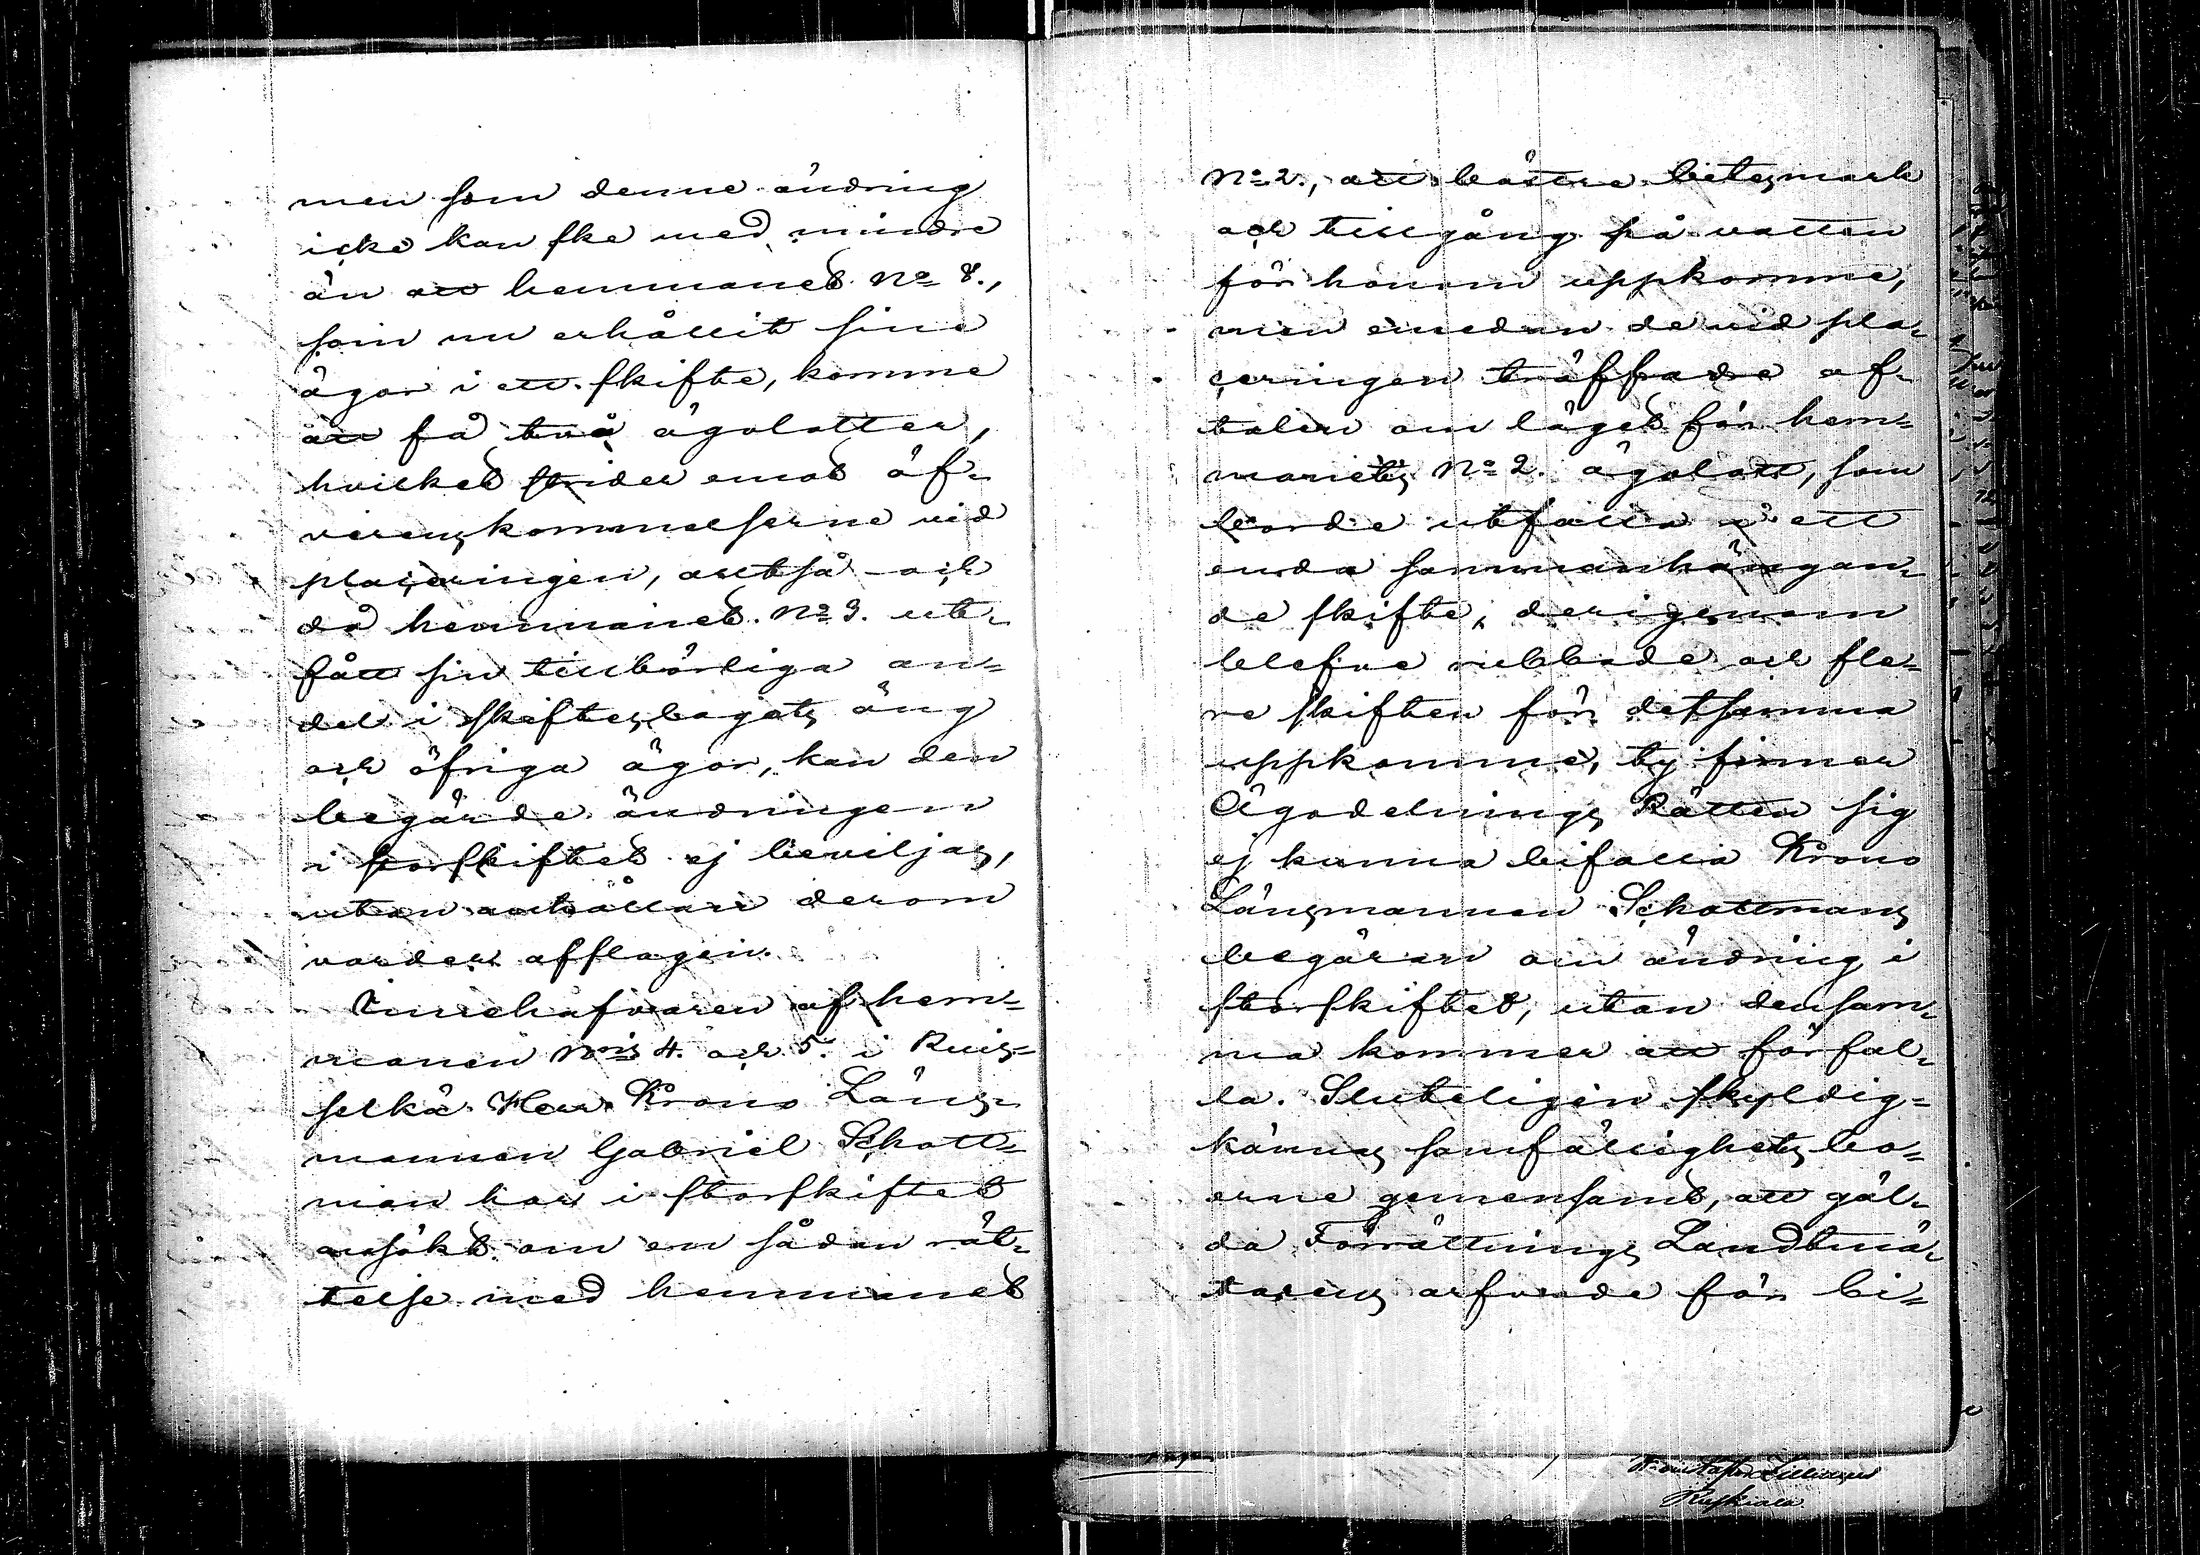 men som denne ändring
icke kan ske med mindre
än att hemmanet No 8.,
som nu erhållit sina
ägor i ett skifte, komme
att få två ägolotter,
hvilket strider emot öf-
verenskommelserne vid
placeringen, altså - och
då hemmanet No 3. ut-
fått sin tillbörliga an-
del i skifteslagets äng
och öfriga ägor, kan den
begärde ändringen
i storskiftet ej beviljas,
utan anhållan derom
varder afslagen.
Innehafvaren af hem-
manen Nris 4. och 5. i Ruis-
selkä Herr Krono Läns-
mannen Gabriel Schott-
man har i storskiftet
ansökt om en sådan rät-
telse med hemmanet
No 2., att bättre betesmark
och tillgång på vatten
för honom uppkomme,
men emedan de vid pla-
ceringen träffade af-
talen om läget för hem-
manets No 2. ägolott, som
borde utfalla i ett
enda sammanhängan-
de skifte, derigenom
blefve rubbade och fle-
re skiften för detsamma
uppkomme, ty finner
Ägodelnings Rätten sig
ej kunna bifalla Krono
Länsmannen Schottmans
begäran om ändring i
storskiftet, utan densam-
ma kommer att förfal-
la. Sluteligen skyldig-
kännes samfällighets bo-
erne gemensamt, att gäl-
da Förrättnings Landtmä-
tarens arfvode för bi-